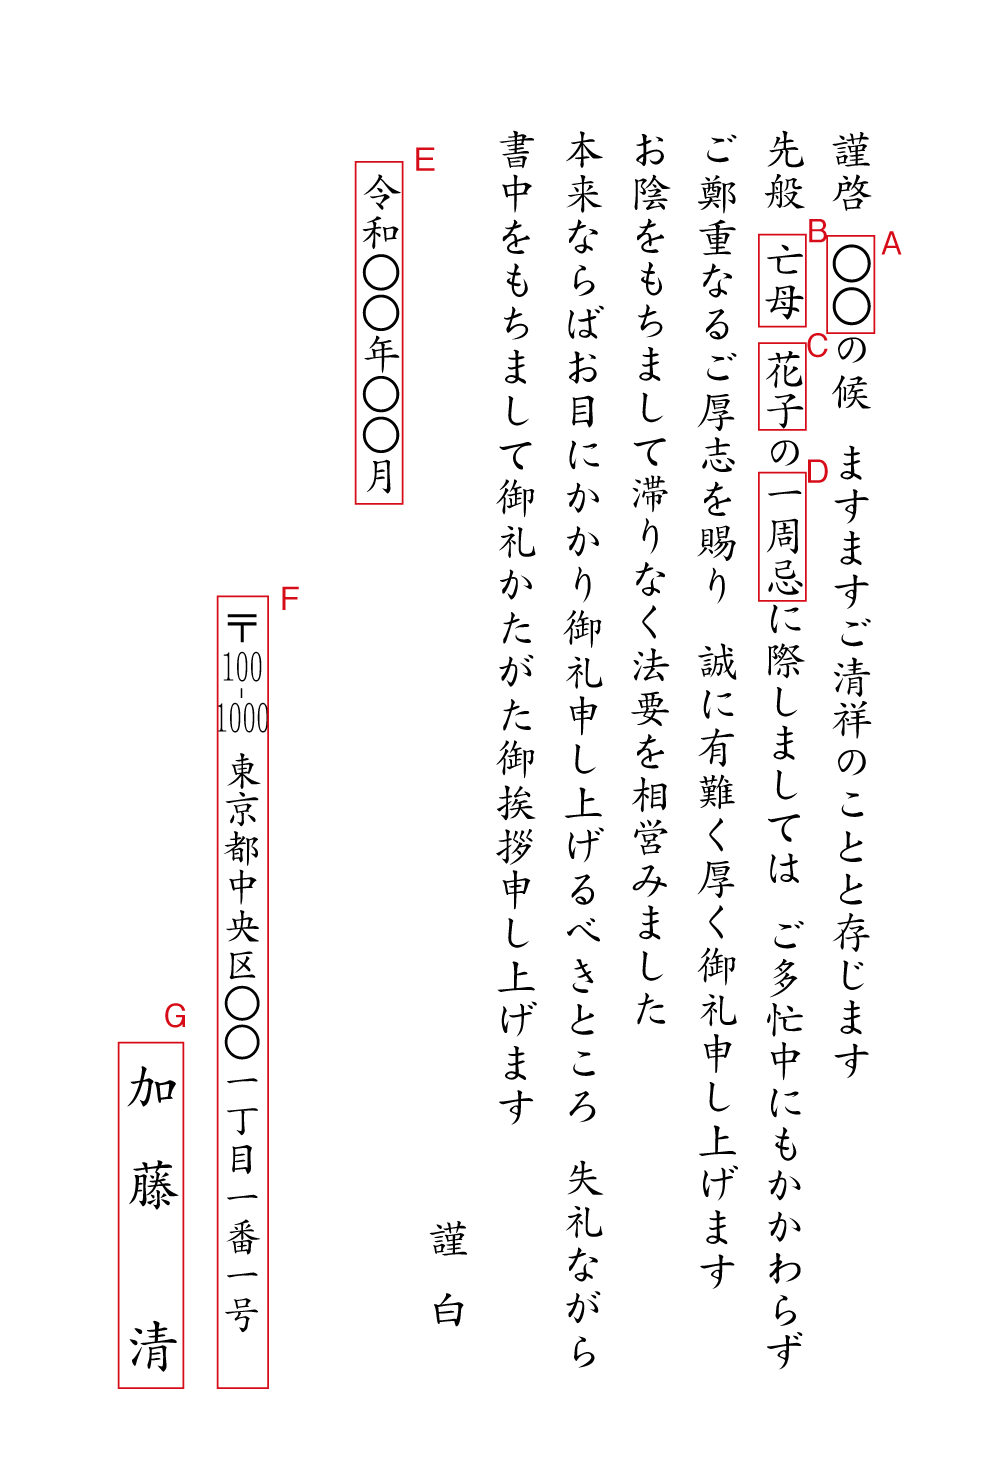 謹啓 〇〇の候 ますますご清祥のことと存じます
A
先般 亡母 花子の一周忌に際しましては ご多忙中にもかかわらず
B
C
D
ご鄭重なるご厚志を賜り 誠に有難く厚く御礼申し上げます
お陰をもちまして滞りなく法要を相営みました
本来ならばお目にかかり御礼申し上げるべきところ 失礼ながら
書中をもちまして御礼かたがた御挨拶申し上げます
謹白
令和〇〇年〇〇月
E
〒100-1000 東京都中央区〇〇一丁目一番一号
F
加藤 清
G